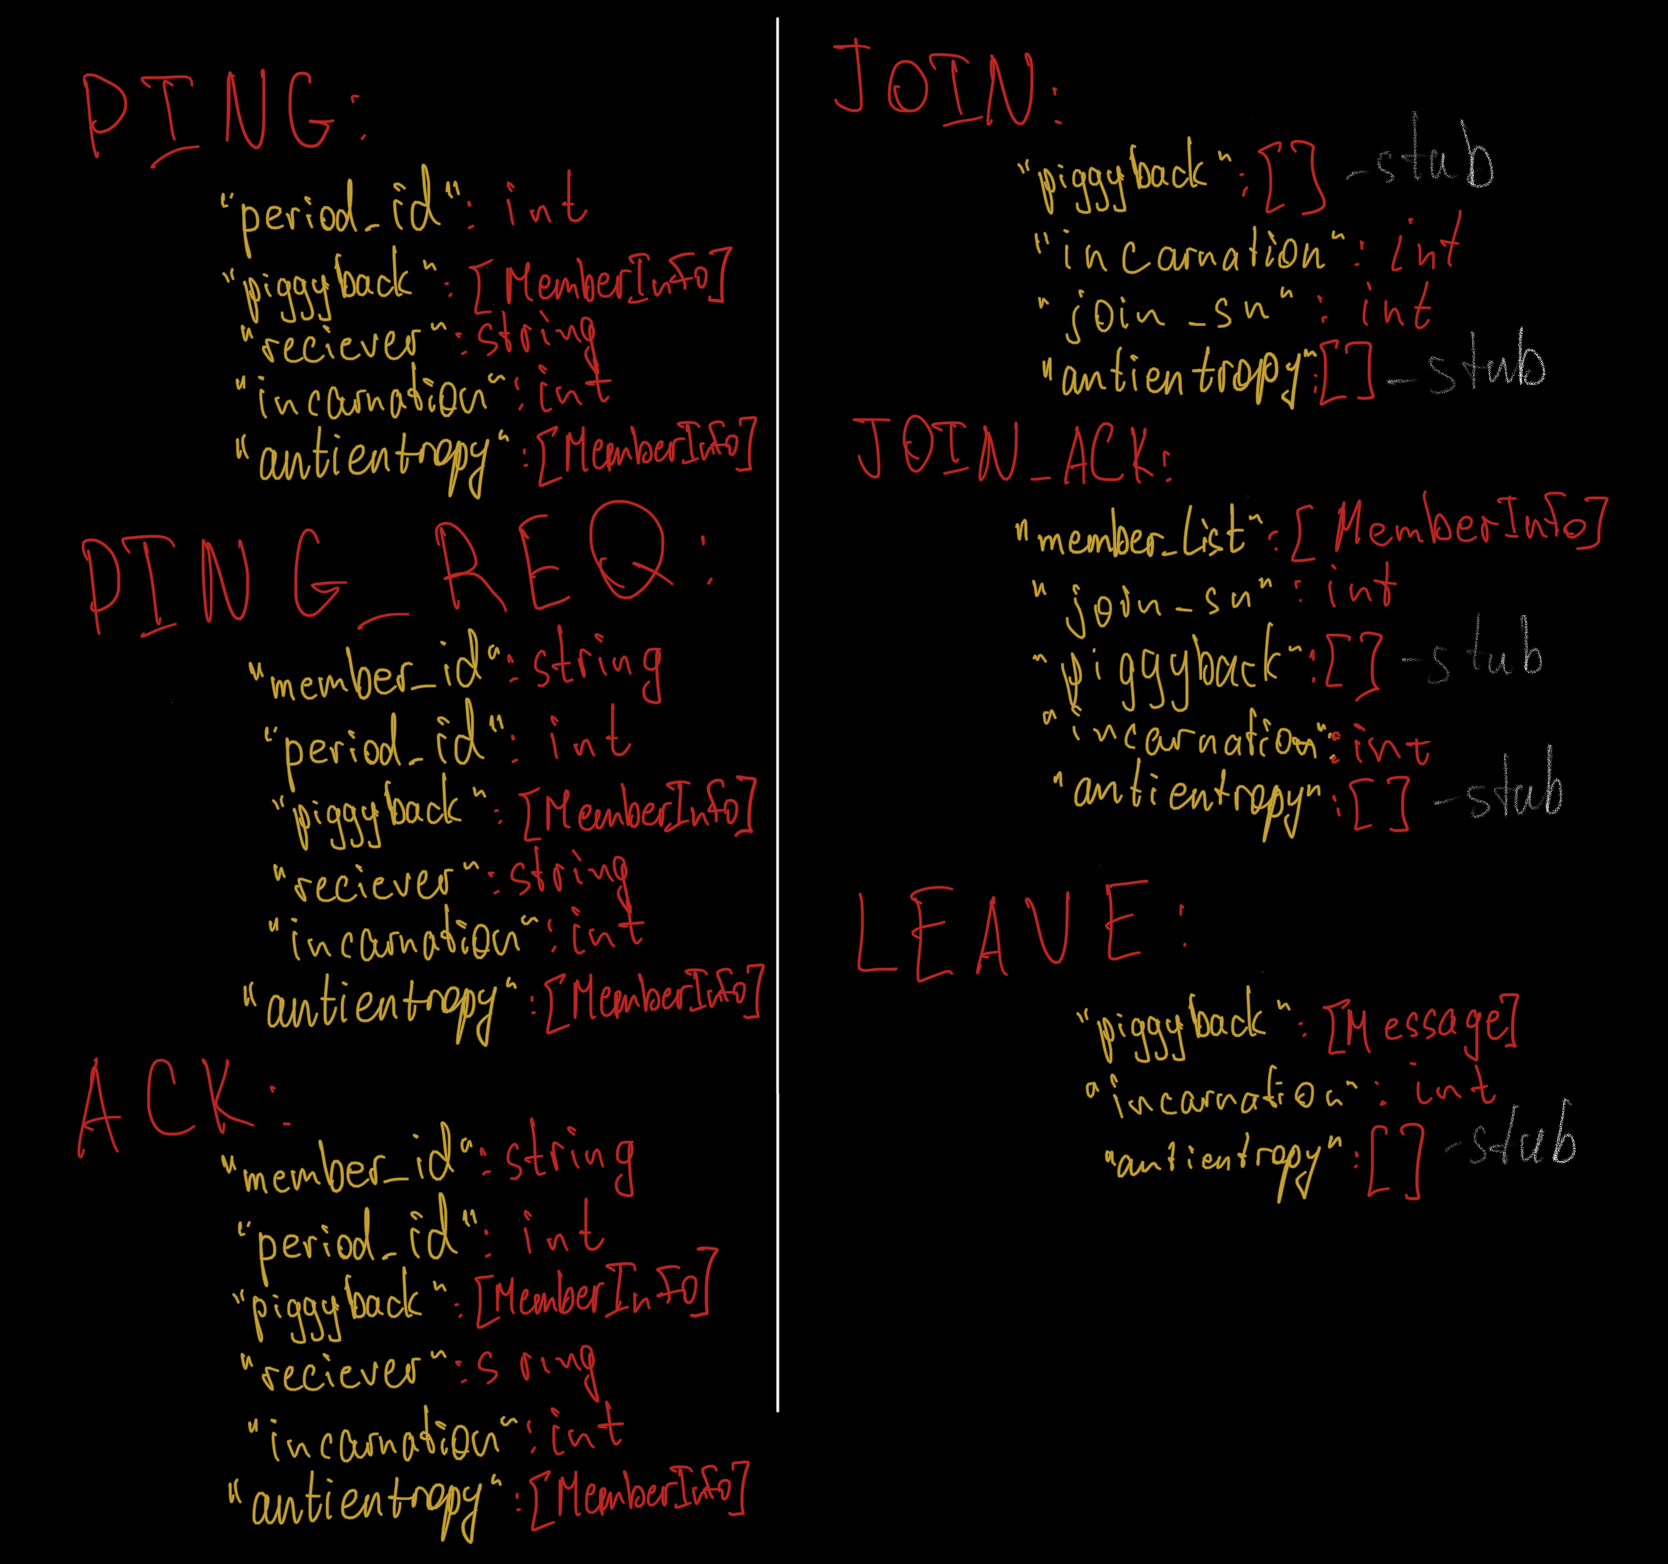 PING:
"period_id": int
"piggyback": [MemberInfo]
"reciever": string
"incarnation": int
"antientropy": [MemberInfo]
PING_REQ:
"member_id": string
"period_id": int
"piggyback": [MemberInfo]
"reciever": string
"incarnation": int
"antientropy": [MemberInfo]
ACK:
"member_id": string
"period_id": int
"piggyback": [MemberInfo]
"reciever": s ring
"incarnation": int
"antientropy": [MemberInfo]
JOIN:
"piggyback": [] - stub
"incarnation": int
"join_sn": int
"antientropy": [] - stub
JOIN_ACK:
"member_list": [MemberInfo]
"join_sn": int
"piggyback": [] - stub
"incarnation": int
"antientropy": [] - stub
LEAVE:
"piggyback": [Message]
"incarnation": int
"antientropy": [] - stub